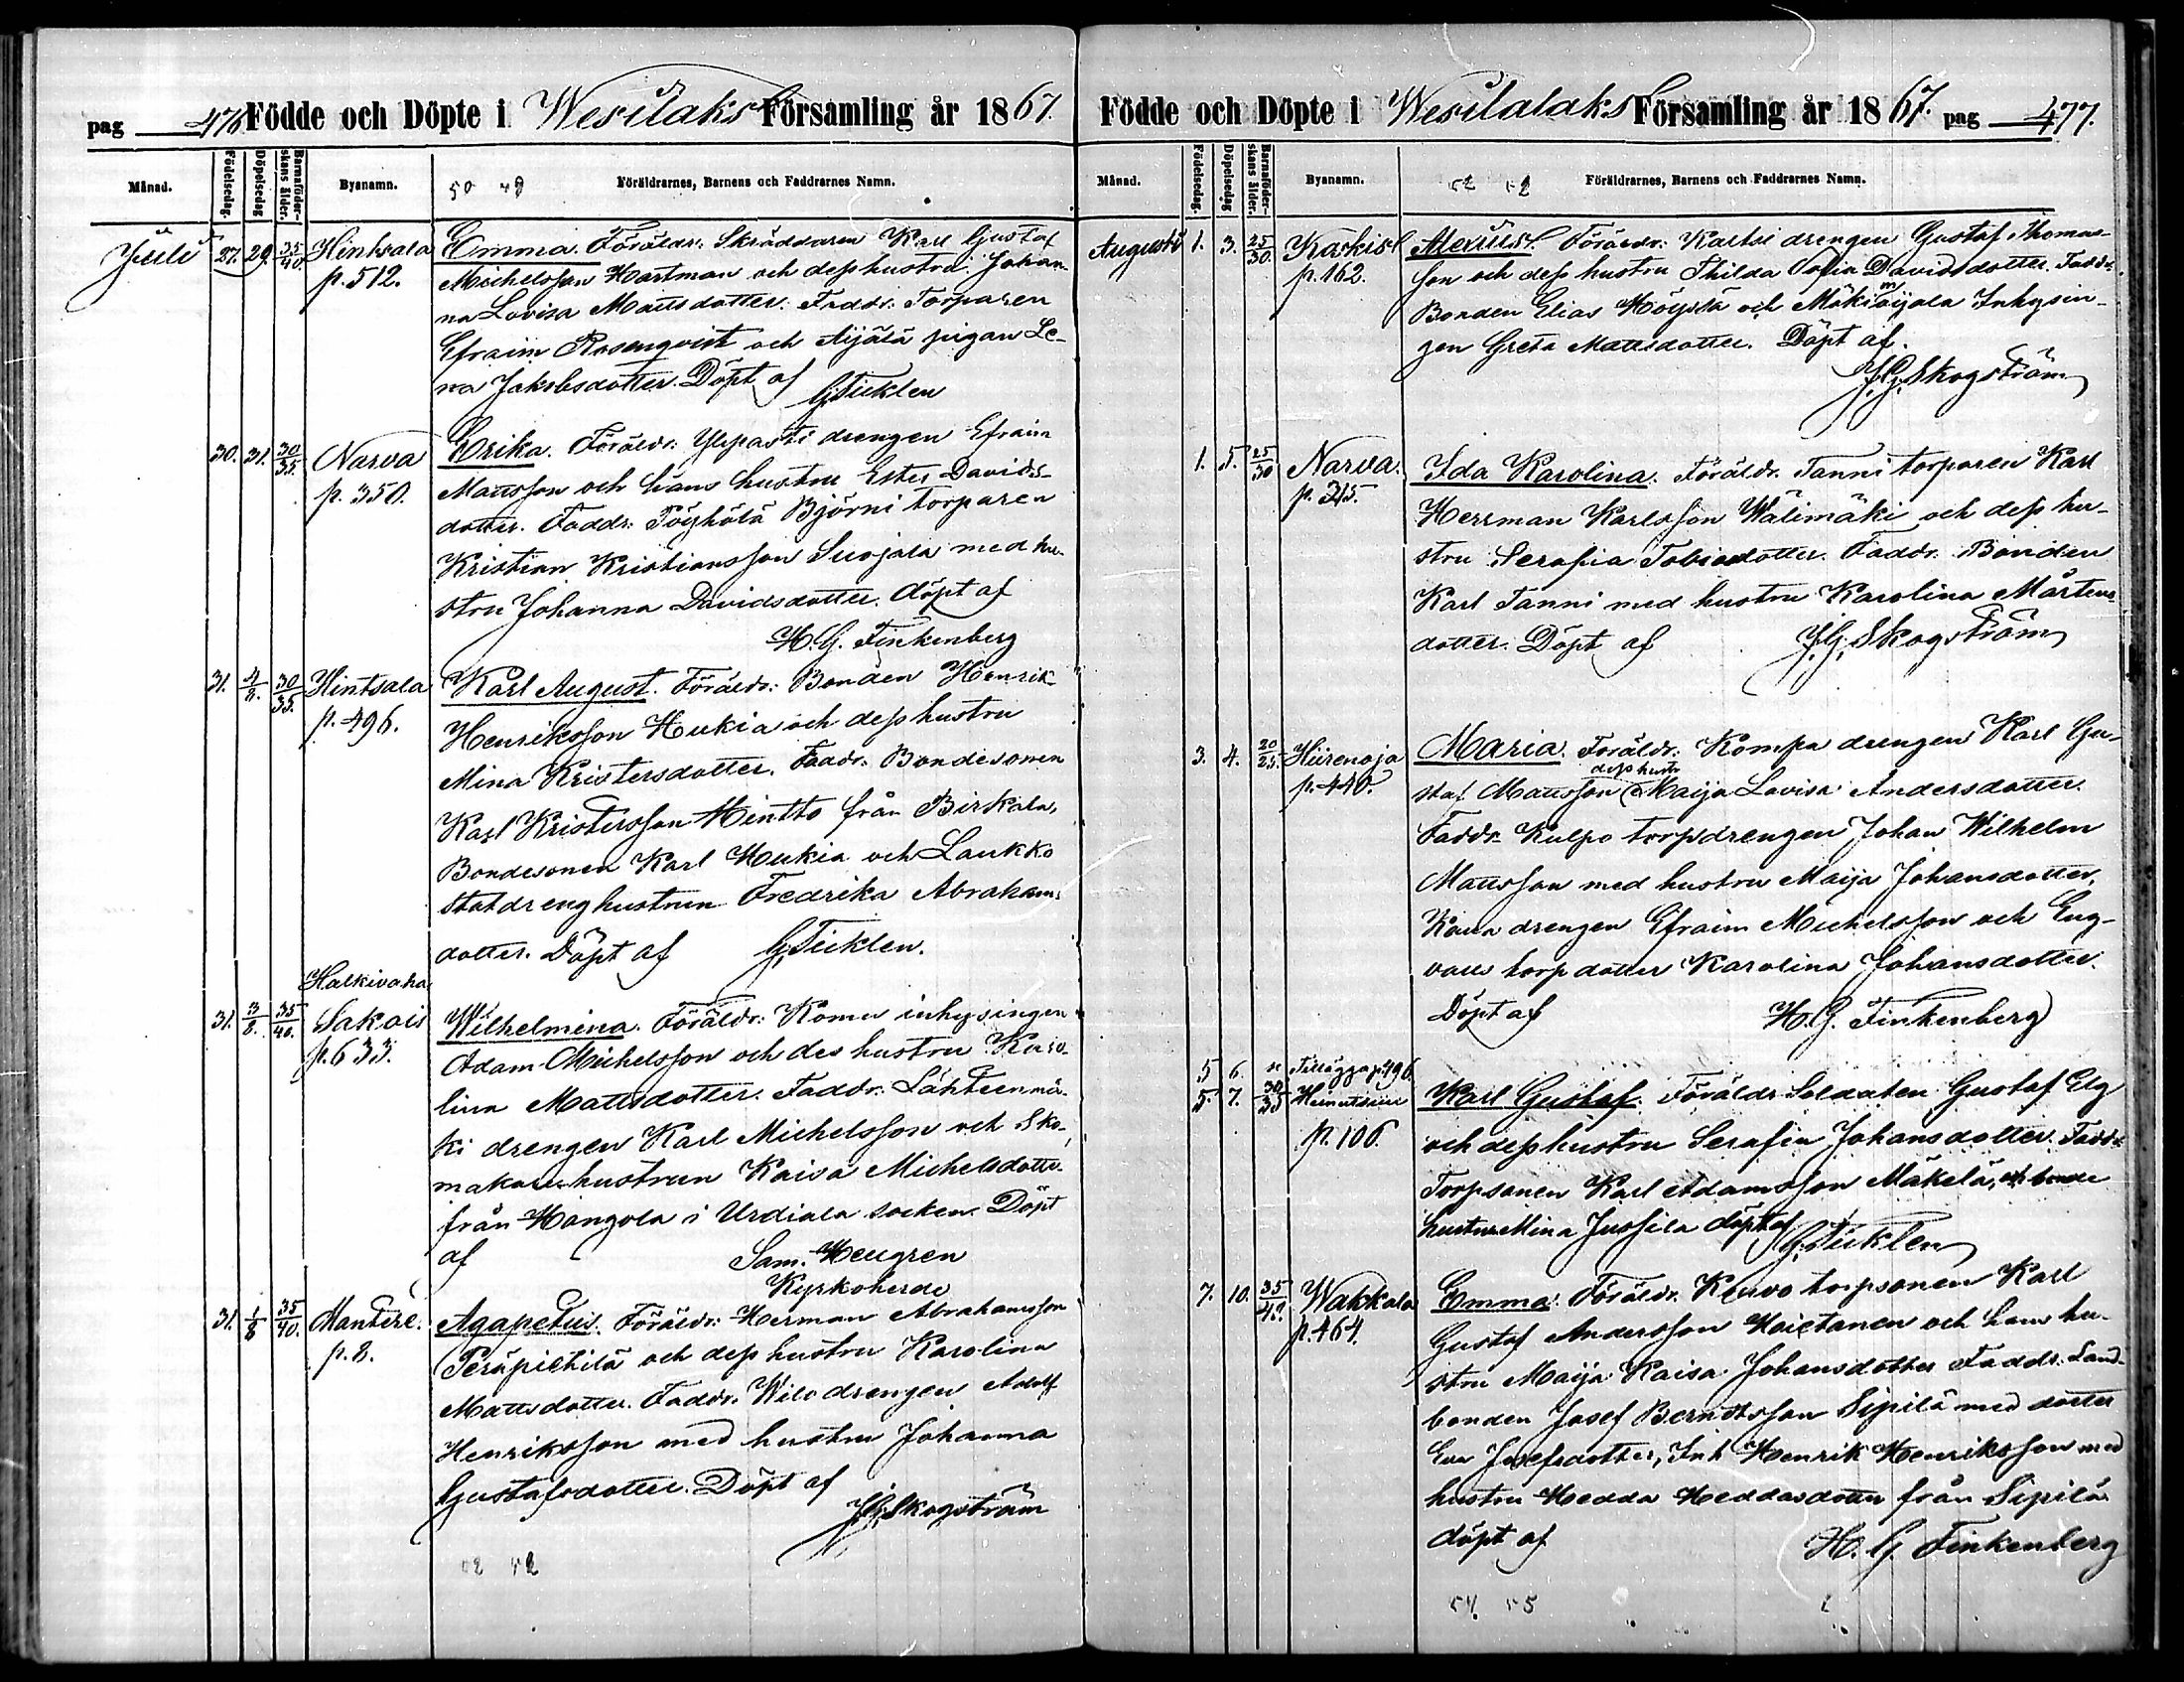 pag 476 Födde och Döpte i Wesilaks Församling år 1867.
Månad. Födelsedag. Döpelsedag Barnaföderskans ålder. Bysnamn. Föräldrarnes, Barnens och Faddrarnes Namn.
50 49
Juli 27. 29. 35/40. Hintsala Emma. Föräldr: Skräddaren Karl Gustaf
p. 512. Michelsson Hartman och dess hustru Johan-
na Lovisa Mattsdotter. Faddr. Torparen
Efraim Rosenqvist och Äijälä pigan Le-
na Jakobsdotter. Döpt af
30. 31. 30/35. Narva Erika. Föräldr: Ylipasti drengen Efraim
p. 350. Mattsson och hans hustru Ester Davids-
dotter. Faddr: Pöyhölä Björni torparen
Kristian Kristiansson Suojala med hu-
stru Johanna Davidsdotter. döpt af
H. G. Finkenberg
31. 4/8. 30/35. Hintsala Karl August. Föräldr: Bonden Henrik
p. 496. Henriksson Hukia och dess hustru
Mina Kristersdotter. Faddr: Bondesonen
Karl Kristersson Hintto från Birkala,
Bondesonen Karl Hukia och Laukko
statdrenghustrun Fredrika Abrahams
dotter. Döpt af
Halkivaha
31. 3/8. 35/40. Sakois Wilhelmina. Föräldr: Komu inhysingen
p. 633. Adam Michelsson och des hustru Karo-
lina Mattsdotter. Faddr: Lähteenmä-
ki drengen Karl Michelsson och Sko-
makarehustrun Kaisa Michelsdotter
från Hongola i Urdiala socken. Döpt
af Sam. Heugren
Kyrkoherde
31. 1/8 35/40. Mantere. Agapetus. Föräldr: Herman Abrahamsson
p. 8. Peräpietilä och dess hustru Karolina
Mattsdotter. Faddr. Wilo drengen Adolf
Henriksson med hustru Johanna
Gustafsdotter. Döpt af
J. G. Skogström
52 52
Födde och Döpte i Wesilalaks Församling år 1867. pag 477.
Månad. Födelsedag. Döpelsedag Barnaföderskans ålder. Bysnamn. Föräldrarnes, Barnens och Faddrarnes Namn.
52 52
Augusti 1. 3. 25/30. Kärkis Föräldr: Kartsi drengen Gustaf Thomas-
p. 162. son och dess hustru Thilda Sofia Davidsdotter. Faddr.
Bonden Elias och Inhysin-
gen Greta Mattsdotter. Döpt af.
J. G. Skogström
1. 5. 25/30 Narva. Ida Karolina. Föräldr. Tanni torparen Karl
p. 315. Herrman Karlsson Wälimäki och dess hu-
stru Serafia Tobiasdotter. Faddr. Bonden
Karl Tanni med hustru Karolina Mårtens
dotter. Döpt af J. G. Skogström
3. 4. 20/25. Hiirenoja Maria. Föräldr: Kompa drengen Karl Gu-
p. 440. staf Mattsson dess hustr Maija Lovisa Andersdotter.
Faddr. Kulpo torpdrengen Johan Wilhelm
Mattsson med hustru Maija Johansdotter,
drengen Efraim Michelsson och
torpdotter Karolina Johansdotter.
Döpt af H. G. Finkenberg
5 6. Tillägg p. 496.
5. 7. 30/35 Karl Gustaf. Föräldr Soldaten Gustaf Elg
p. 106. och dess hustru Serafia Johansdotter. Faddr
Torpsonen Karl Adamsson Mäkelä, och bonde
hustru Mina Jussila döpt af
7. 10. 35/42. Wakkala Emma. Föräldr. torpsonen Karl
p. 464. Gustaf Andersson och hans hu-
stru Maija Kaisa Johansdotter Faddr. Land-
bonden Josef Berndtsson Sipilä med dotter
Eva Josefsdotter, Inh Henrik Henriksson med
hustru Hedda Heddasdotter från Sipilä
döpt af H. G. Finkenberg
54. 55